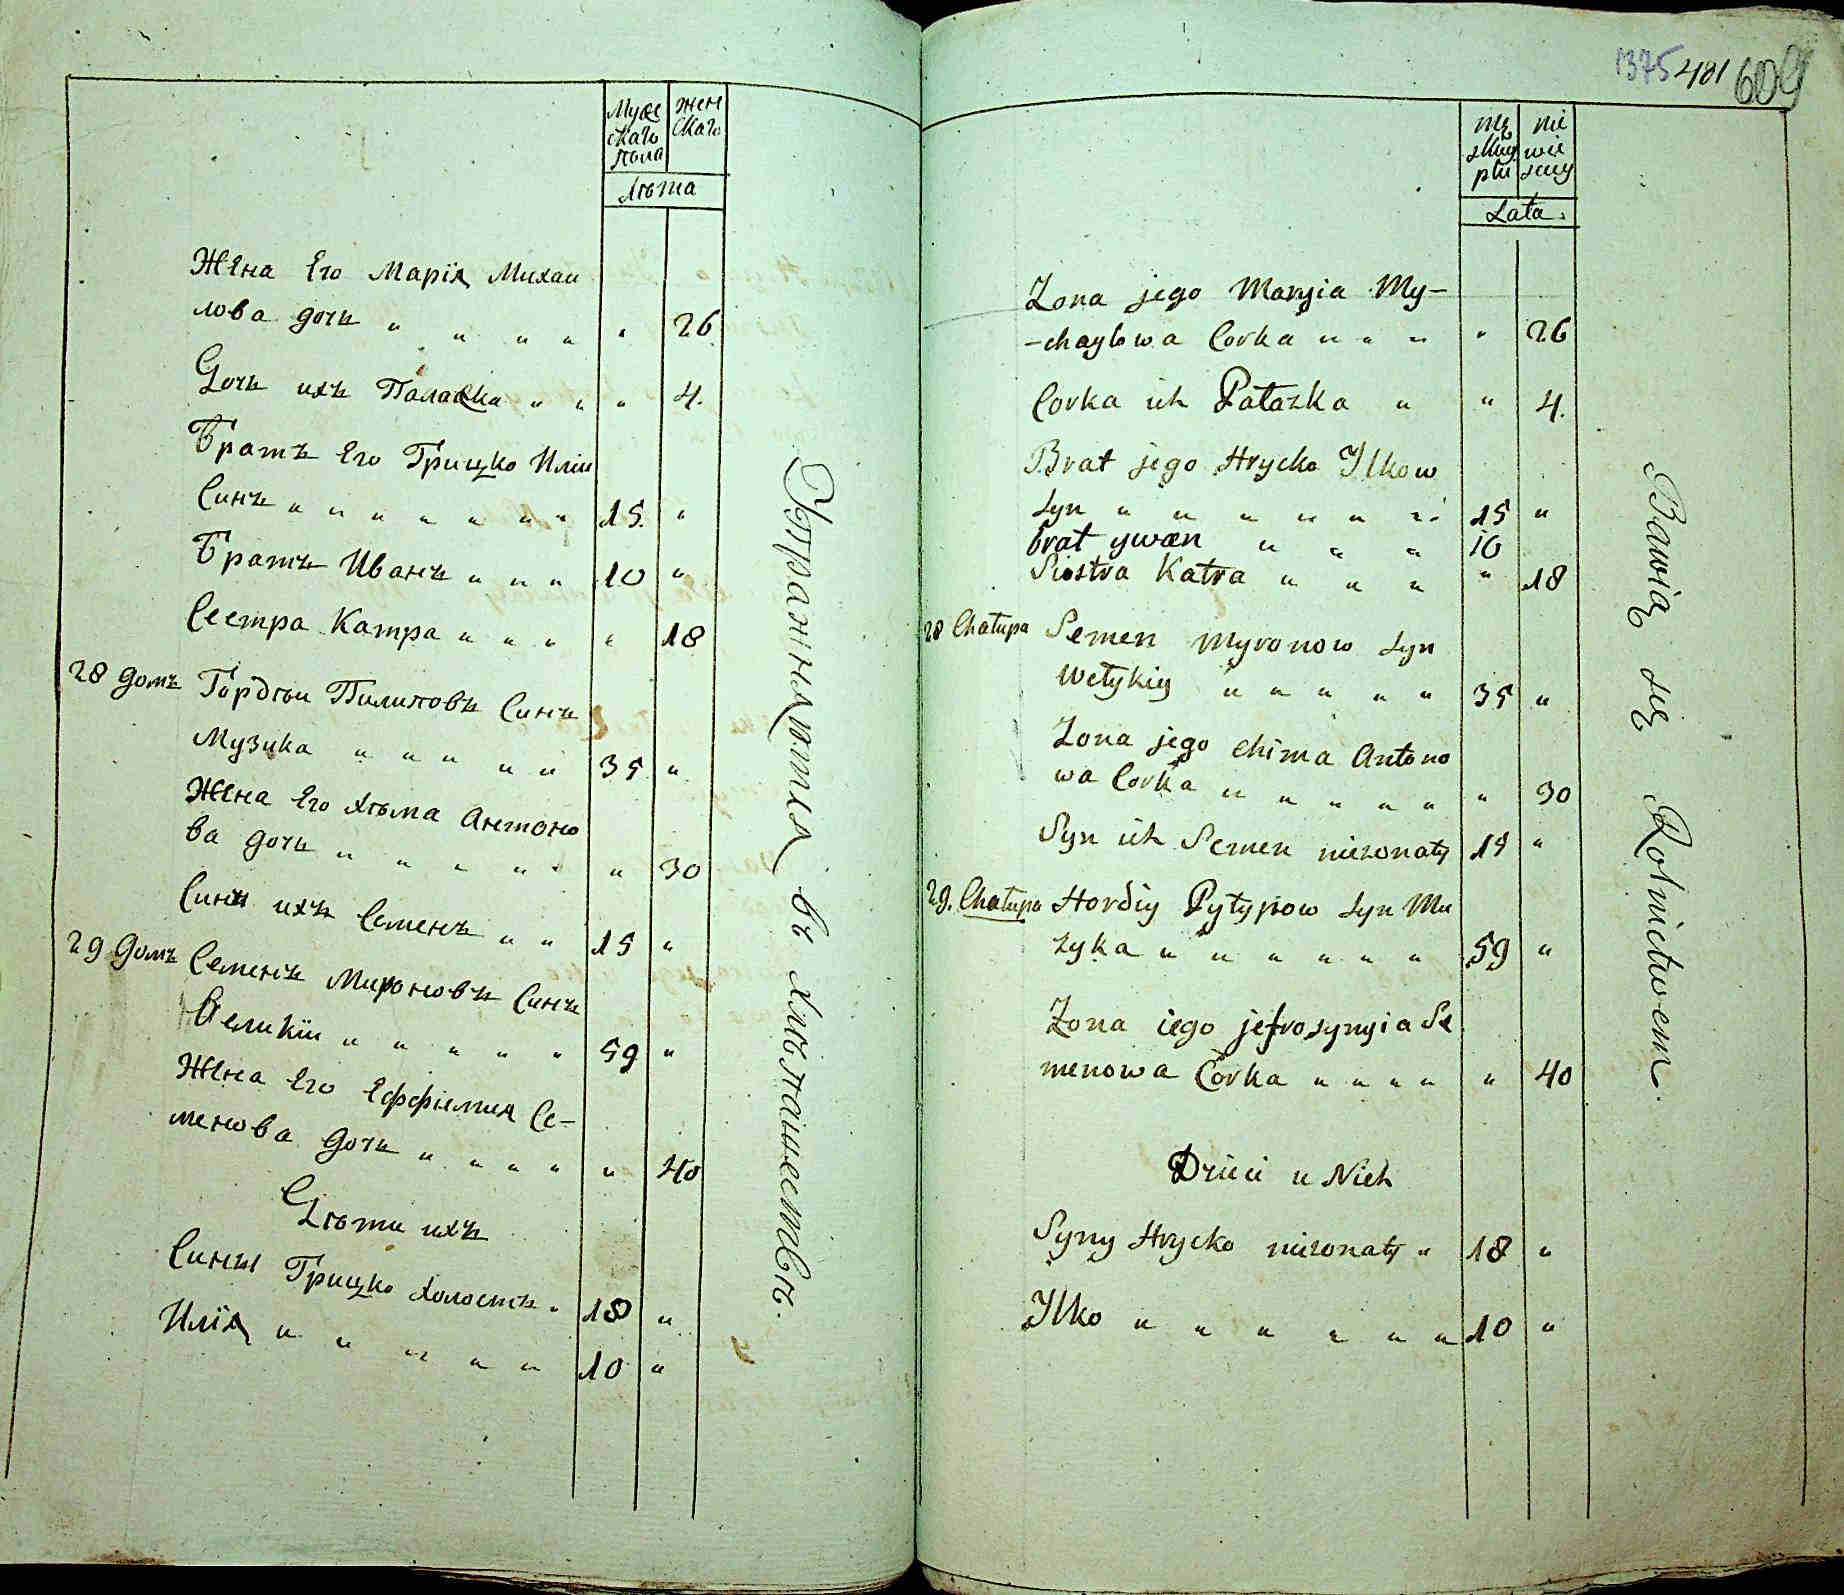 Муже
скаго
пола
жен
скаго
Лѣта
Жена Его Марія Михаи
лова дочь " " " " " 26
Дочь ихъ Паласка " " " 4.
Братъ Его Грицко Иліи
Синъ " " " " " " " 15. "
Братъ Иванъ " " " 10 "
Сестра Катра " " " " 18
28 домъ Гордѣи Пилиповъ Синъ
Музика " " " " " 35 "
Жена Его Хѣма Антоно
ва дочь " " " " " " 30
Синъ ихъ Семенъ " " 15 "
29 домъ Семенъ Мироновъ Синъ
Великіи " " " " " 59 "
Жена Его Еффимия Се-
менова дочь " " " " " 40
Дѣти ихъ
Сины Грицко холостъ " 18 "
Илія " " " " " 10 "
Упражняются въ хлѣбпашествѣ.
1375 481 609
mę
skiey
płci
nie
wie
sciey
Lata.
Zona jego Maryia My-
-chayłowa Corka " " " " 26
Corka ich Pałazka " " 4.
Brat jego Hrycko Ilkow
syn " " " " " " 15 "
brat ywan " " " 10
Siostra Katra " " " " 18
28 Chałupa Semen Myronow syn
Wełykiy " " " " " 35 "
Zona jego Chima Antono
wa Corka " " " " " " 30
Syn ich Semen niezonaty 15 "
29. Chałupa Hordiy Pyłypow syn Mu
zyka " " " " " " 59 "
Zona iego jefrosynyia Se
menowa Corka " " " " " 40
Dzieci u Nich
Syny Hrycko niezonaty " 18 "
Ilko " " " " " " 10 "
Bawią się Rolnictwem.